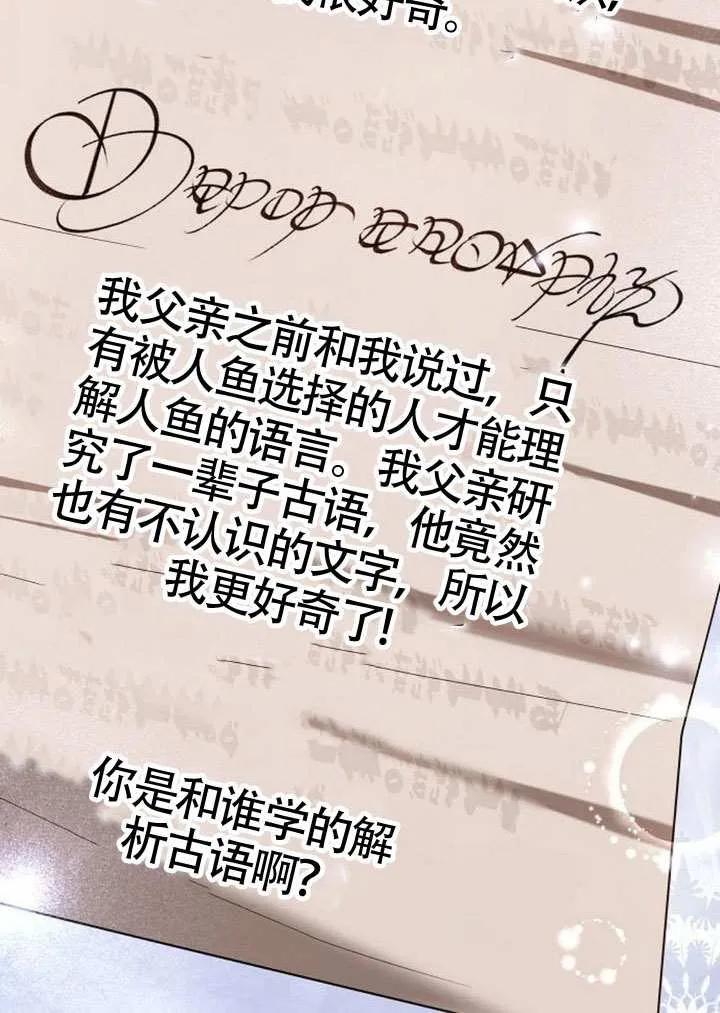 很好奇。
我父亲之前和我说过, 只
有被人鱼选择的人才能理
解人鱼的语言。我父亲研
究了一辈子古语, 他竟然
也有不认识的文字, 所以
我更好奇了!
你是和谁学的解
析古语啊?